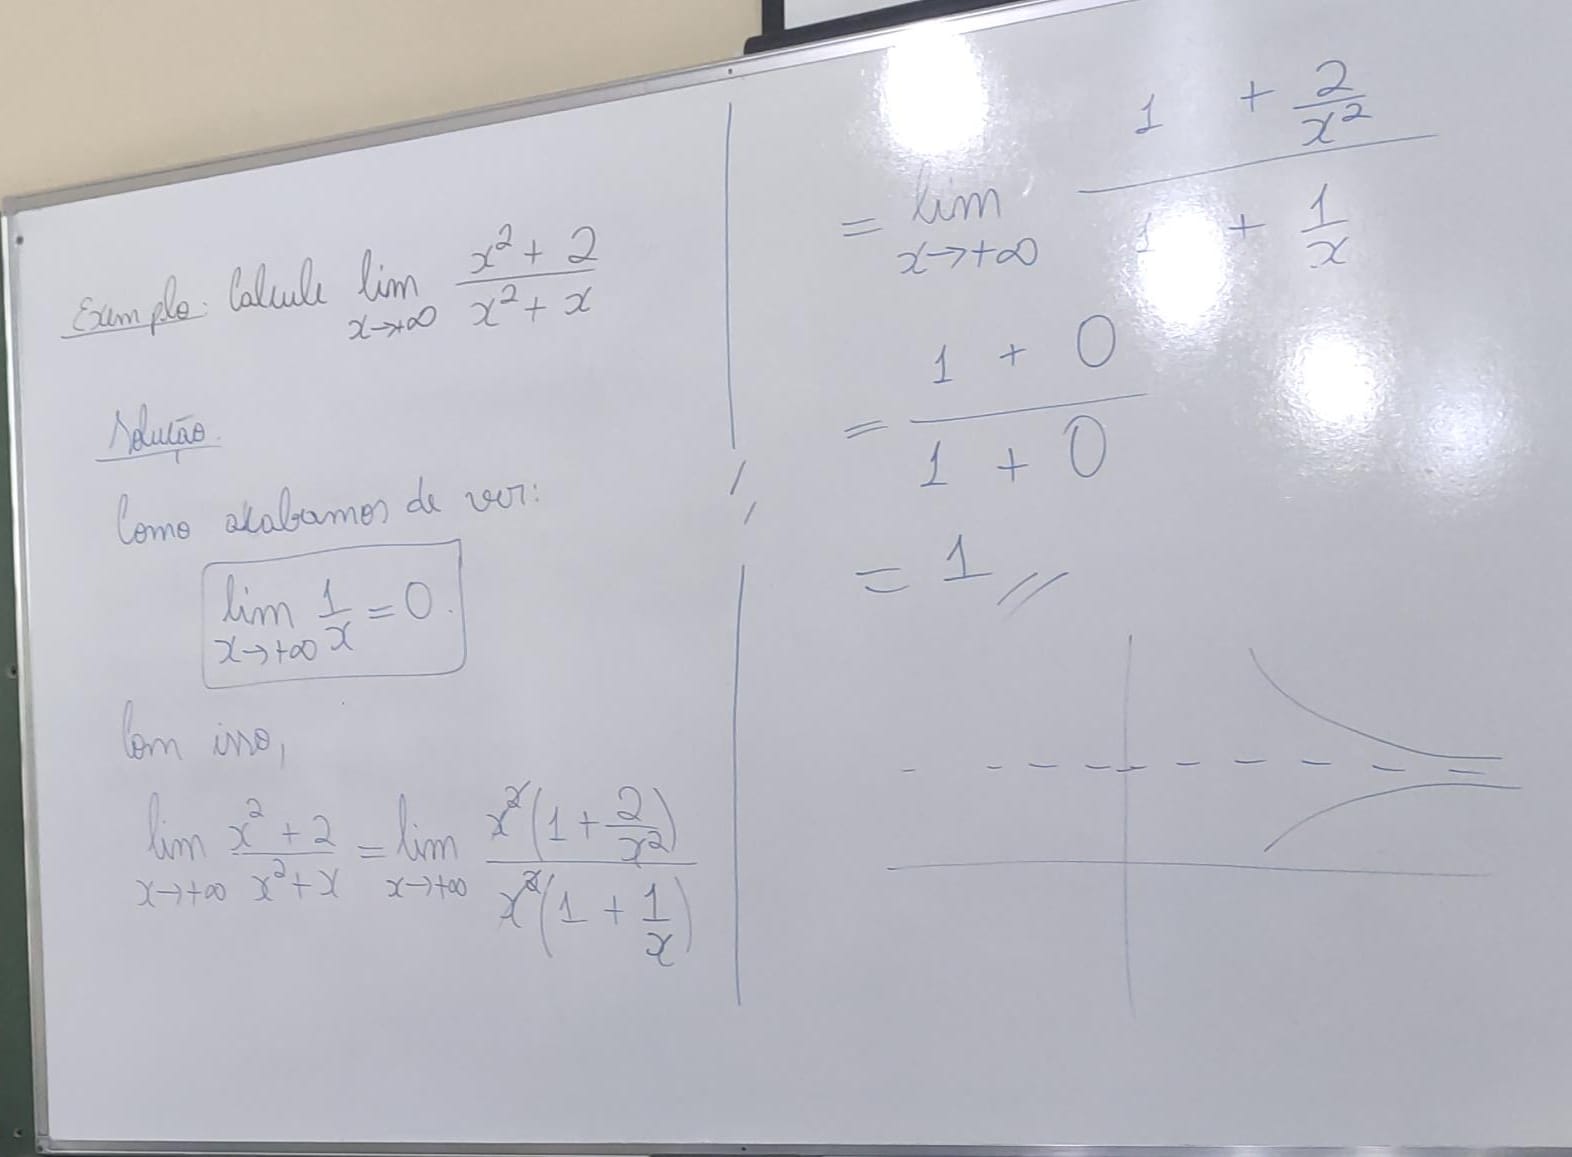 Exemplo: Calcule lim x→+∞ (x² + 2)/(x² + x)
Solução.
Como acabamos de ver:
lim x→+∞ 1/x = 0.
Com isso,
lim x→+∞ (x² + 2)/(x² + x) = lim x→+∞ x²(1 + 2/x²)/x²(1 + 1/x)
= lim x→+∞ (1 + 2/x²)/(1 + 1/x)
= (1 + 0)/(1 + 0)
= 1 //